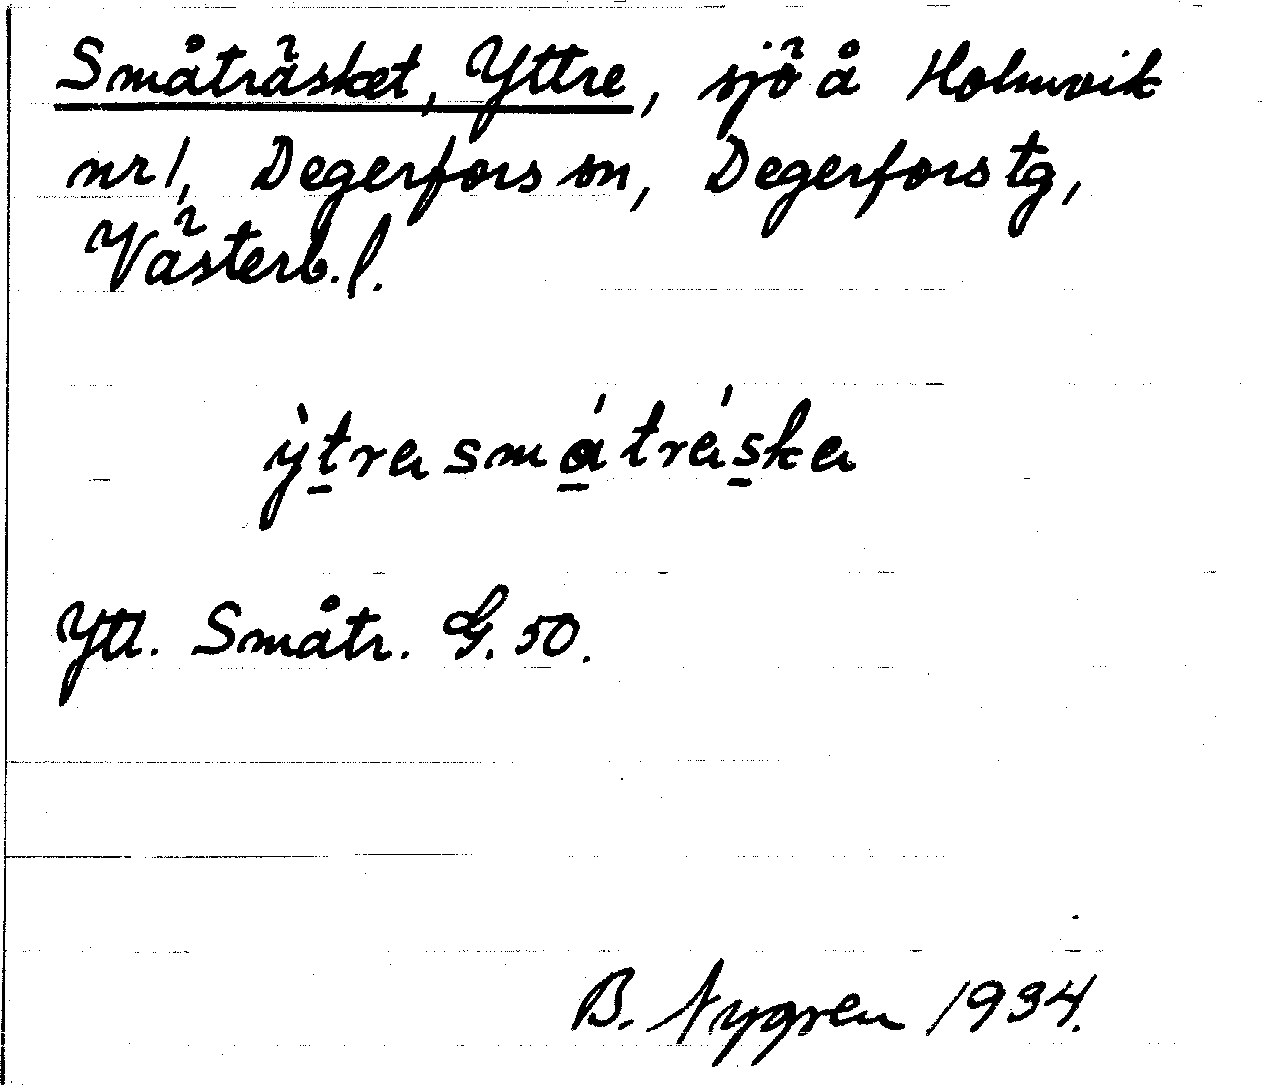 Småträsket, Yttre, sjö å Holmvik
nr 1, Degerfors sn, Degerfors tg,
Västerb. l.
ỳtra småtráska
Ytt. Småtr. G. 50.
B. Nygren 1934.